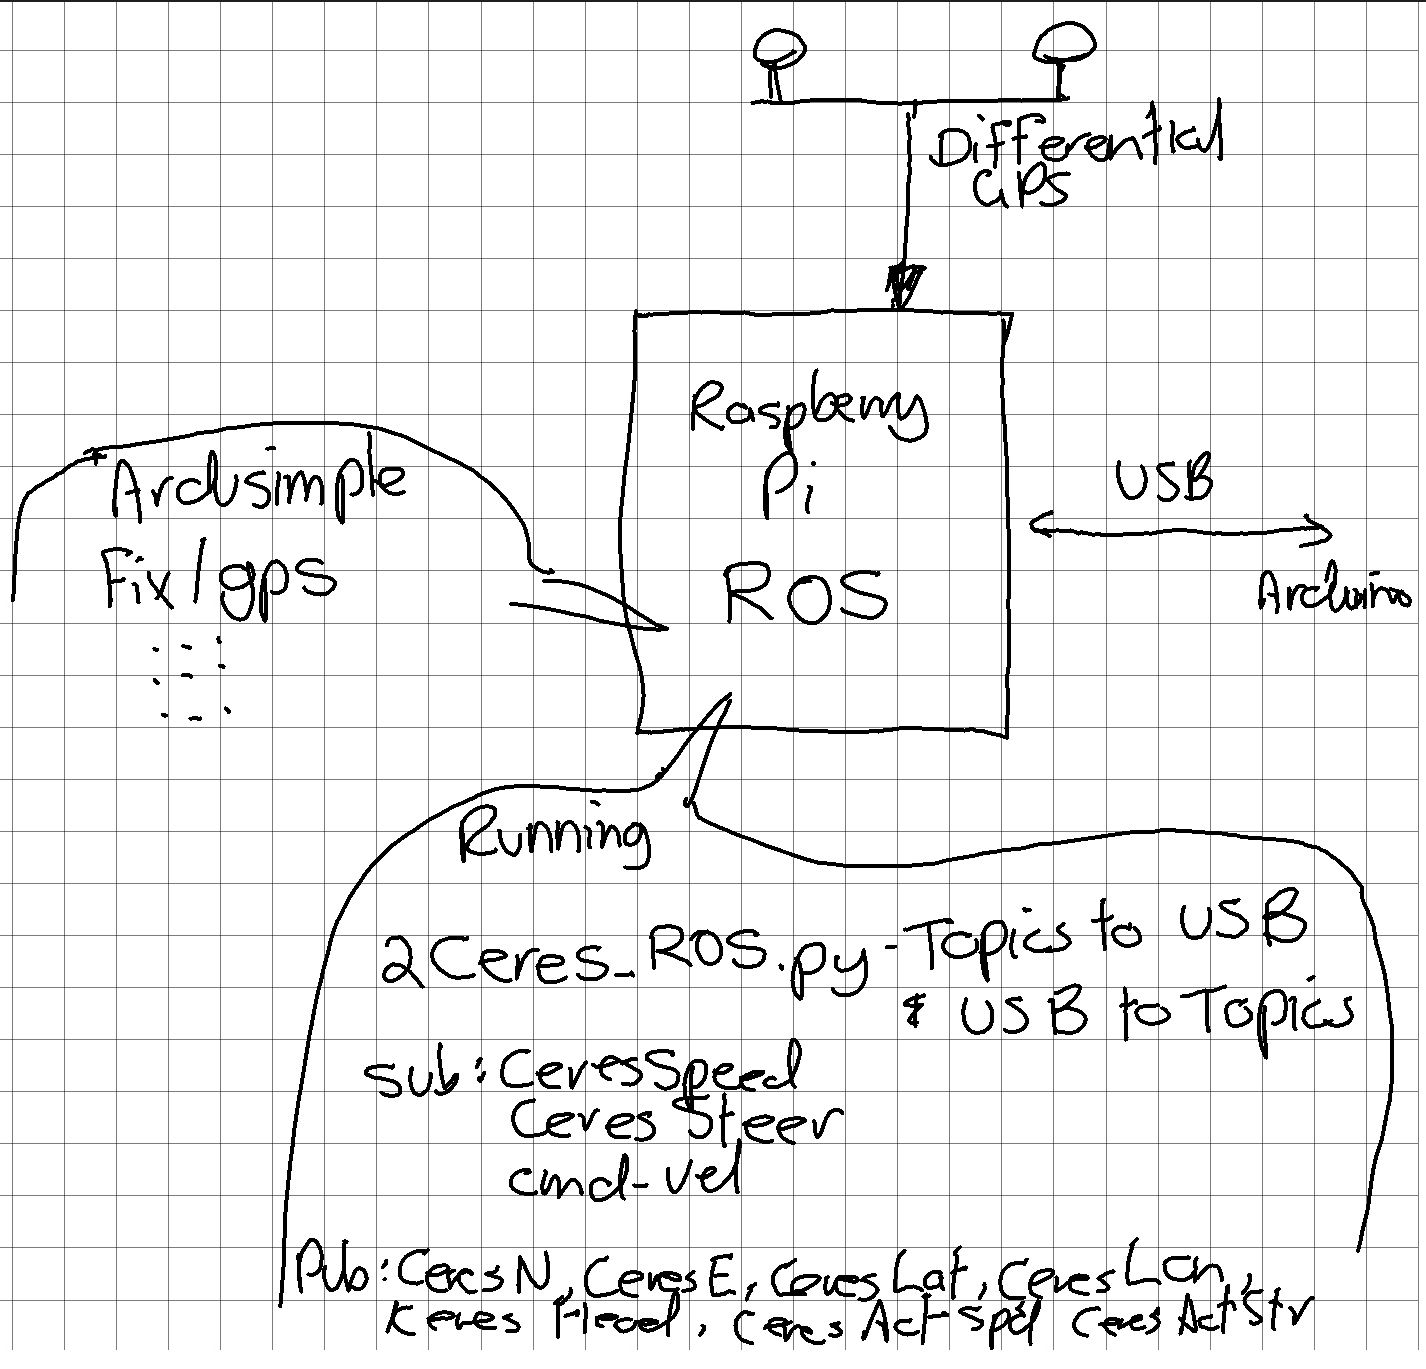 Differential
GPS
Raspberry
Pi
ROS
USB
Arduino
Ardusimple
Fix/gps
Running
2Ceres_ROS.py - Topics to USB
& USB to Topics
sub: CeresSpeed
Ceres Steer
cmd-vel
Pub: CeresN, CeresE, CeresLat, CeresLon,
Ceres Head, Ceres Act Spd Ceres Act Str